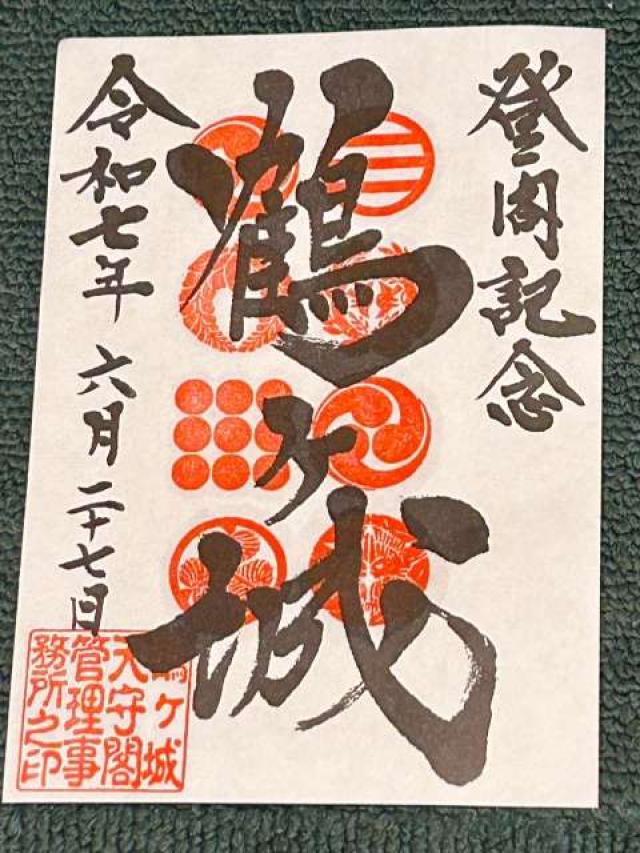 登閣記念
鶴ヶ城
令和七年 六月二十七日
鶴ヶ城
天守閣
管理事
務所之印